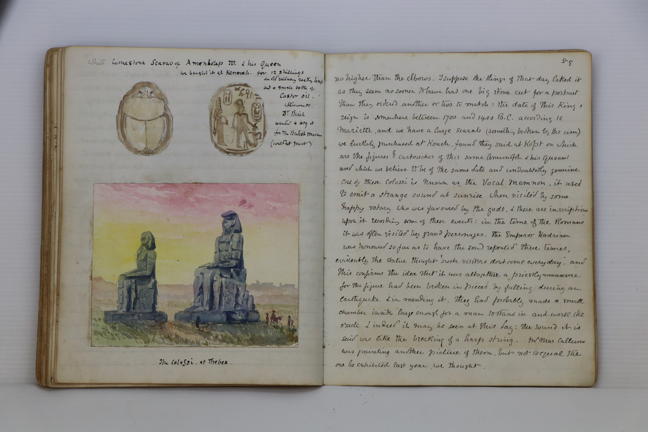 White Limestone Scarab of Amunoluph III & his Queen
we bought it at Keneveh. for 12 shillings
and a bottle of
Castor oil.
afterwards
Dr Birch
wanted to buy it
for the British Museum
The Colossi. at Thebes.
no higher than the elbows. I suppose the Kings of that day liked it
as they seem as soon as one big stone cut for a portrait
than they ordered another or two to match: the date of this King's
reign is somewhere between 1700 and 1400 B.C. according to
Mariette, and we have a large scarab (somewhat broken by the sun)
we luckily purchased at Keneh, found they said at Kopt on which
are the figures & cartouches of this same Amunoluph & his Queen
and which we believe to be of the same date and undoubtedly genuine
One of these Colossi is known as the Vocal Memnon, it used
to emit a strange sound at sunrise when visited by some
happy votary who was favoured by the gods, & there are inscriptions
upon it recording some of these events: in the time of the Romans
it was often visited by grand personages. the Emperor Hadrian
was honoured so far as to have the sound repeated three times,
evidently the statue thought 'such visitors dont come everyday', and
this confirms the idea that it was altogether a priestly manoeuvre
for the figure had been broken in pieces by falling during an
Earthquake & in mending it, they had probably made a small
chamber inside large enough for a man to stand in and work the
oracle & indeed it may be seen at this day: the sound it is
said was like the breaking of a harp string. Mr
was painting another picture of them, but not so good as the
one he exhibited last year, we thought.